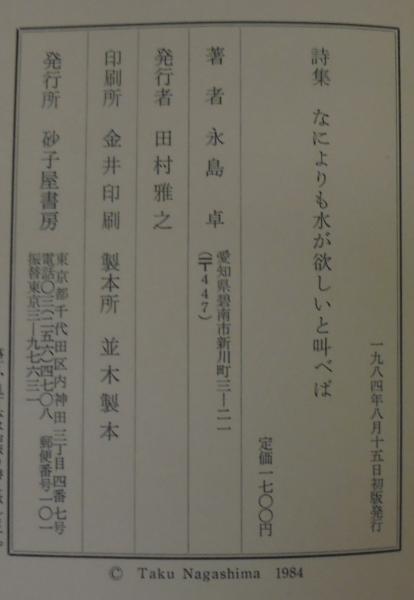 詩集 なによりも水が欲しいと叫べば
一九八四年八月十五日初版発行
定価一七〇〇円
著者 永島 卓
愛知県碧南市新川町三ー二一
(〒447)
発行者 田村雅之
印刷所 金井印刷 製本所 並木製本
発行所 砂子屋書房
東京都千代田区内神田三丁目四番七号
電話〇三(二五六)四七〇八 郵便番号一〇一
振替東京三ー九七六三一
© Taku Nagashima 1984